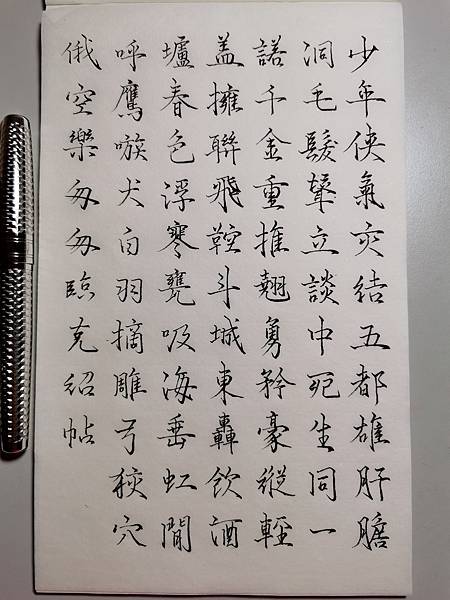 少年俠氣交結五都雄肝膽
洞毛髮聳立談中死生同一
諾千金重推翹勇矜豪縱輕
盖擁聯飛鞚斗城東轟飲酒
壚春色浮寒甕吸海垂虹閒
呼鷹嗾犬白羽摘雕弓狡穴
俄空樂匆匆臨克紹帖